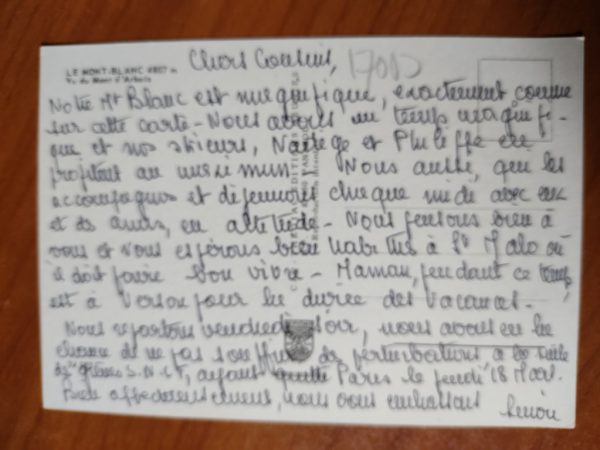 Chers Cousins,
17000
LE MONT-BLANC 4807 m
Vu du Mont d'Arbois
Notre Mt Blanc est magnifique, exactement comme
sur cette carte - Nous avons un temps magnifi-
que et nos skieurs, Nadège et Philippe en
profitent au maximum. Nous aussi, que les
accompagnons et déjeunons chaque midi avec eux
et des amis, en altitude - Nous pensons bien à
vous et vous espérons bien habitués à St Malo où
il doit faire bon vivre - Maman, pendant ce temps
est à Verson pour la durée des vacances -
Nous repartons vendredi soir, nous avons eu la
chance de ne pas souffrir des perturbations à la suite
grèves S.N.C.F, ayant quitté Paris le jeudi 18 Mars.
Bien affectueusement, nous vous embrassons